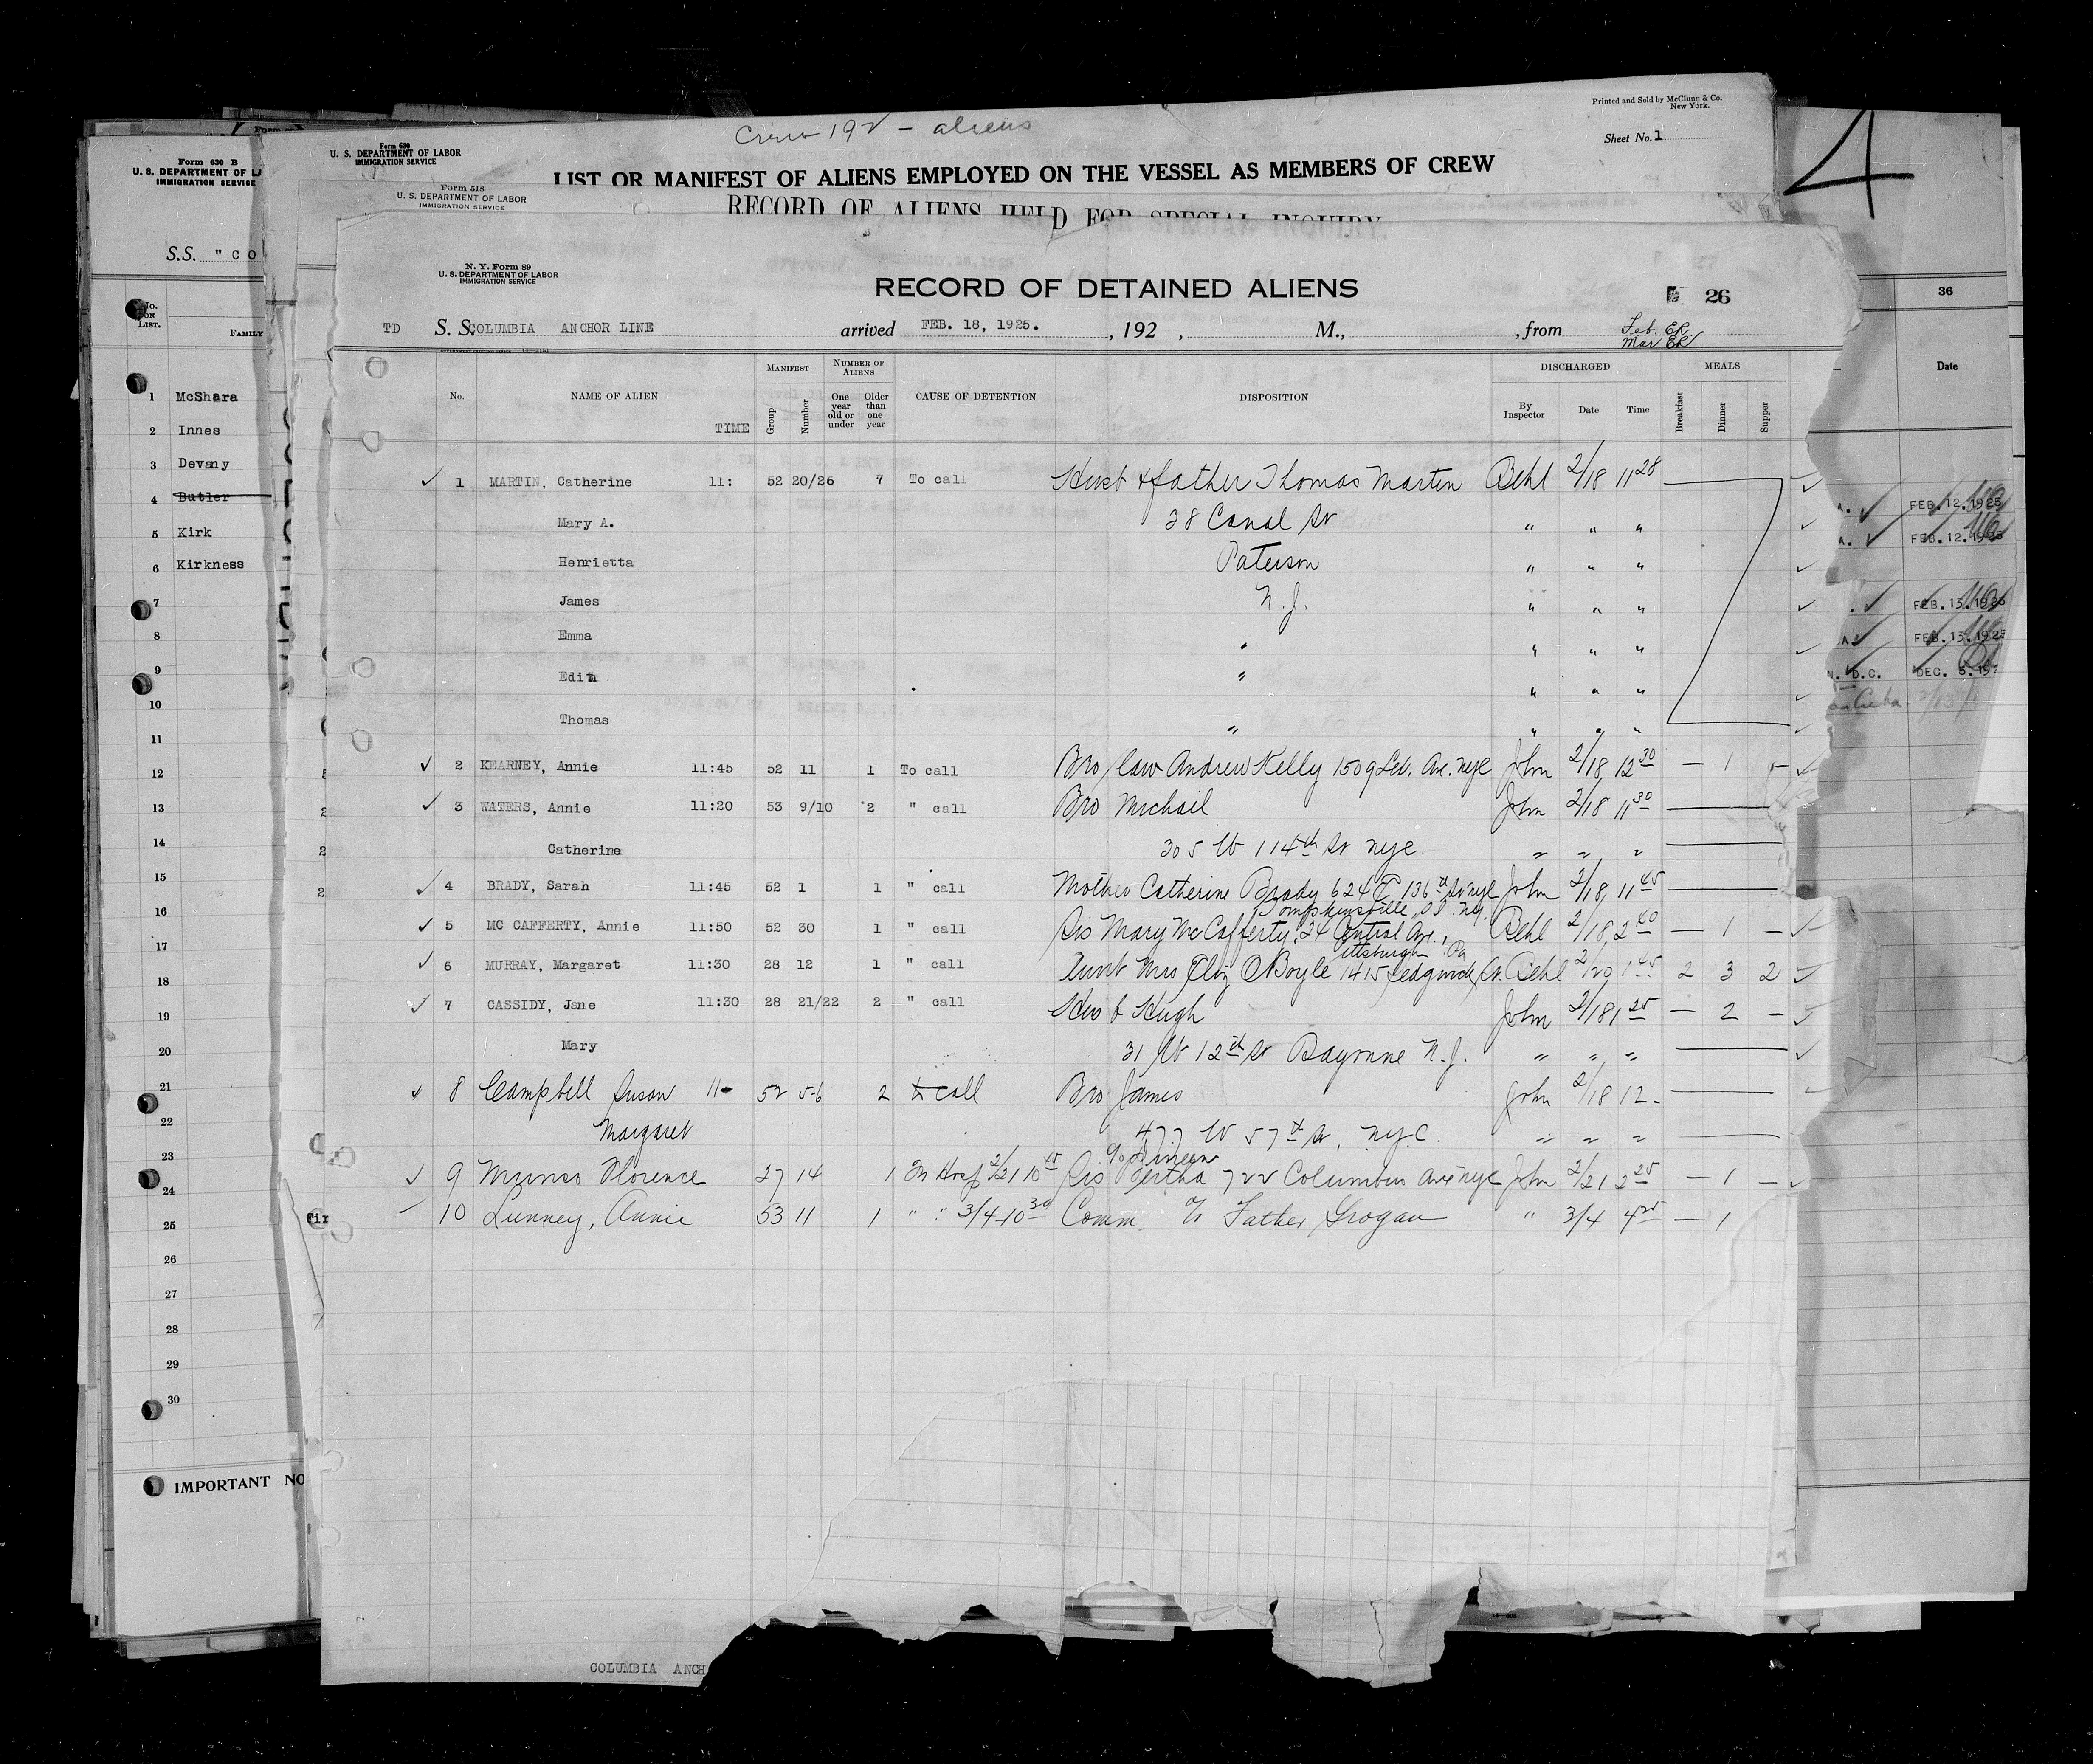 Printed and Sold by McClunn & Co.
New York.
Crew 192 - aliens
Sheet No. 1
4
Form 630
U. S. DEPARTMENT OF LABOR
IMMIGRATION SERVICE
LIST OR MANIFEST OF ALIENS EMPLOYED ON THE VESSEL AS MEMBERS OF CREW
Form 630 B
U. S. DEPARTMENT OF LA
IMMIGRATION SERVICE
Form 518
U. S. DEPARTMENT OF LABOR
IMMIGRATION SERVICE
RECORD OF ALIENS HELD FOR SPECIAL INQUIRY
S.S. "CO
No. ON LIST. FAMILY
1 McShara
2 Innes
3 Devany
4 Butler
5 Kirk
6 Kirkness
7
8
9
10
11
12
13
14
15
16
17
18
19
20
21
22
23
24
25
26
27
28
29
30
IMPORTANT NO
N. Y. Form 89
U. S. DEPARTMENT OF LABOR
IMMIGRATION SERVICE
RECORD OF DETAINED ALIENS
26
TD S. S. COLUMBIA ANCHOR LINE arrived FEB. 18, 1925. , 192 , M., , from Feb. ER
Mar ER
No. NAME OF ALIEN TIME MANIFEST Group Number NUMBER OF ALIENS One year old or under Older than one year CAUSE OF DETENTION DISPOSITION DISCHARGED By Inspector Date Time MEALS Breakfast Dinner Supper
✓ 1 MARTIN, Catherine 11: 52 20/26 7 To call Husb & father Thomas Martin Behl 2/18 11 28 ✓
Mary A. 38 Canal St " " " ✓
Henrietta Paterson " " " ✓
James N. J. " " " ✓
Emma " " " " ✓
Edith " " " " ✓
Thomas " " " " ✓
✓ 2 KEARNEY, Annie 11:45 52 11 1 To call Bro/law Andrew Kelly 1509 Lex. Ave. nyc John 2/18 12 30 — 1 — ✓
✓ 3 WATERS, Annie 11:20 53 9/10 2 " call Bro Michail John 2/18 11 30
Catherine 305 W 114th St nyc " " "
✓ 4 BRADY, Sarah 11:45 52 1 1 " call Mother Catherine Brady 624 E 136th St nyc John 2/18 11 45
Tompkinsville, S I. N.Y.
✓ 5 MC CAFFERTY, Annie 11:50 52 30 1 " call Sis Mary McCafferty, 24 Central Ave., Behl 2/18 2 40 — 1 — ✓
Pittsburgh Pa
✓ 6 MURRAY, Margaret 11:30 28 12 1 " call Aunt Mrs Eliz O'Boyle 1415 Sedgwick St. Behl 2/20 1 45 2 3 2 ✓
✓ 7 CASSIDY, Jane 11:30 28 21/22 2 " call Husb Hugh John 2/18 1 25 — 2 — ✓
Mary 31 W 12th St Bayonne N. J. " " " ✓
✓ 8 Campbell Susan 11- 52 5-6 2 to call Bro James John 2/18 12-
Margaret 477 W 57th St, N.Y.C. " " "
✓ 9 Munro Florence 27 14 1 In Hosp 2/21 10 Sis Bertha 722 Columbus Ave nyc John 2/21 2 25 — 1 — ✓
10 Lunney, Annie 53 11 1 " " 3/4 10 30 Comm. To Father Grogan " 3/4 4 25 — 1
COLUMBIA ANCH
36
Date
FEB. 12. 1925
FEB. 12. 1925
FEB. 13. 1925
FEB. 13. 1925
N. D.C. DEC. 5. 19